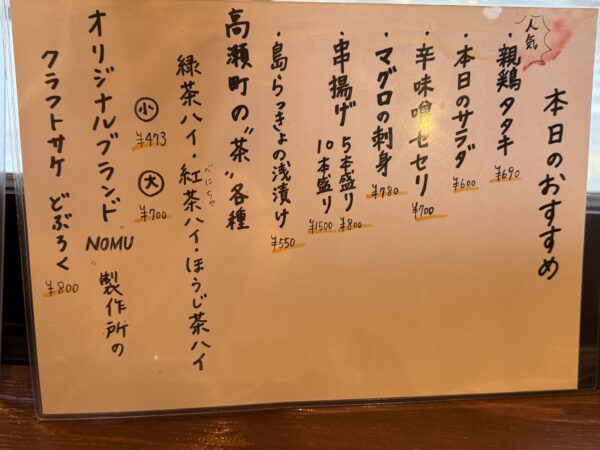 本日のおすすめ
人気
・親鶏タタキ ¥690
・本日のサラダ ¥600
・辛味噌セセリ ¥700
・マグロの刺身 ¥780
・串揚げ 5本盛り ¥800
10本盛り ¥1500
・島らっきょの浅漬け ¥550
高瀬町の"茶"各種
緑茶ハイ・紅茶ハイ・ほうじ茶ハイ
べにちゃ
小 ¥473 大 ¥700
オリジナルブランド"NOMU"製作所の
クラフトサケ どぶろく ¥800